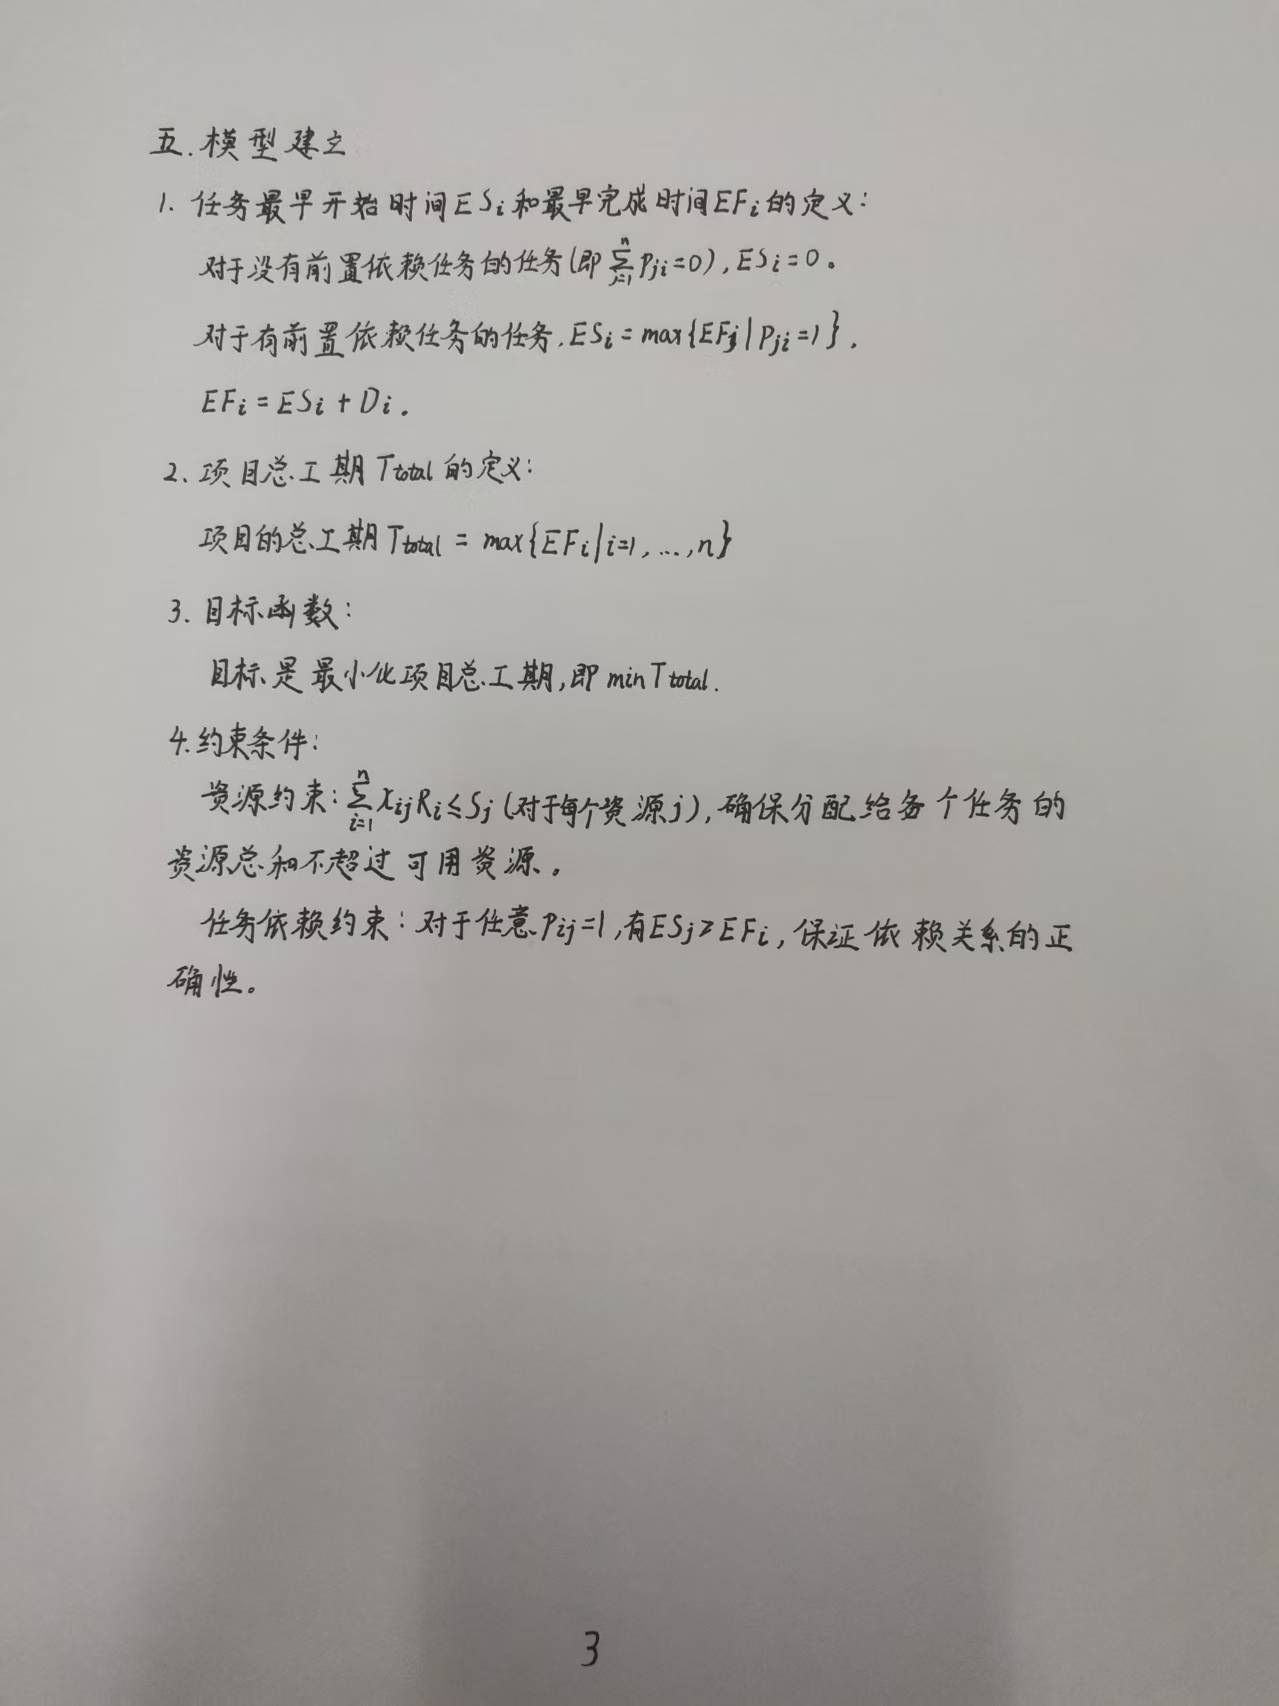 五.模型建立
1. 任务最早开始时间ESi和最早完成时间EFi的定义：
对于没有前置依赖任务的任务(即∑_{j=1}^{n} Pji=0), ESi=0。
对于有前置依赖任务的任务,ESi=max{EFj|Pji=1}。
EFi=ESi+Di。
2. 项目总工期Ttotal的定义：
项目的总工期Ttotal=max{EFi|i=1,...,n}
3. 目标函数：
目标是最小化项目总工期,即minTtotal.
4.约束条件：
资源约束：∑_{i=1}^{n} XijRi≤Sj(对于每个资源j),确保分配给各个任务的
资源总和不超过可用资源。
任务依赖约束：对于任意Pij=1,有ESj≥EFi,保证依赖关系的正
确性。
3